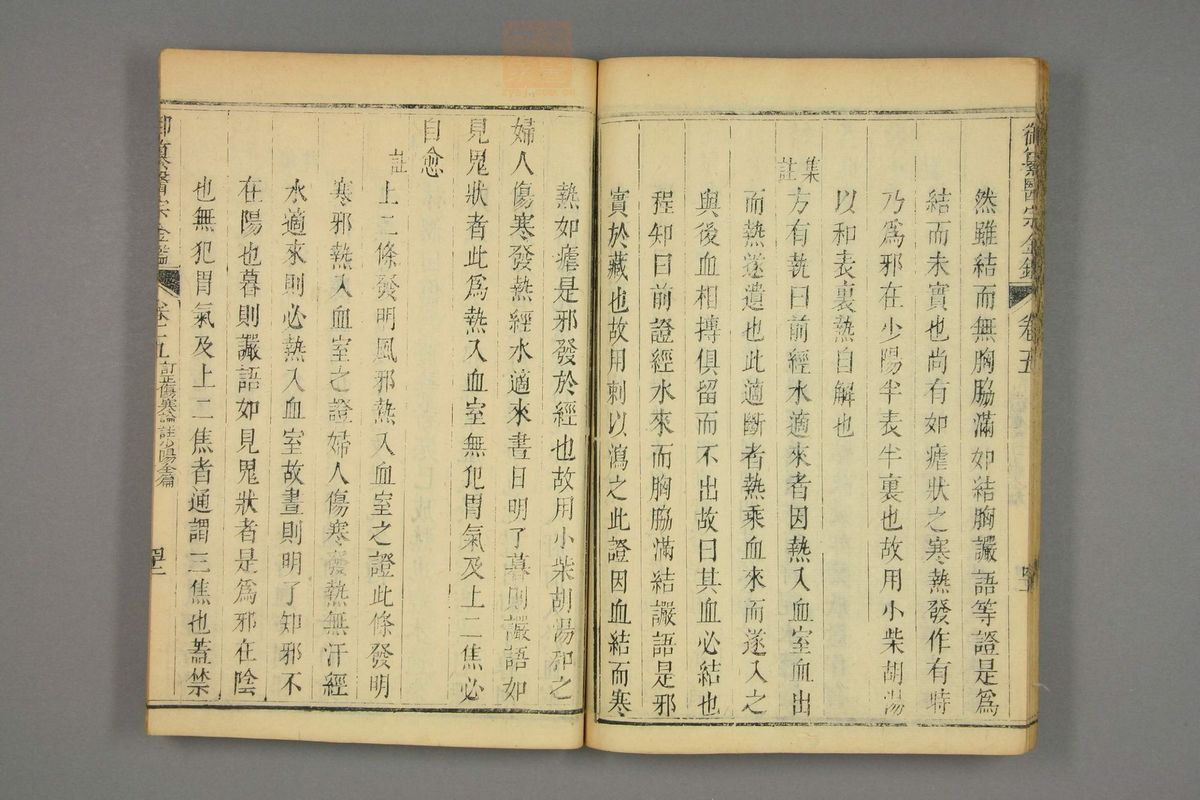 御纂醫宗金鑑 卷五
然雖結而無胸脇滿如結胸讝語等證是爲
結而未實也尚有如瘧狀之寒熱發作有時
乃爲邪在少陽半表半裏也故用小柴胡湯
以和表裏熱自解也
集註
方有執曰前經水適來者因熱入血室血出
而熱遂遺也此適斷者熱乘血來而遂入之
與後血相搏俱留而不出故曰其血必結也
程知曰前證經水來而胸脇滿結讝語是邪
實於藏也故用刺以瀉之此證因血結而寒
熱如瘧是邪發於經也故用小柴胡湯和之
婦人傷寒發熱經水適來晝日明了暮則讝語如
見鬼狀者此爲熱入血室無犯胃氣及上二焦必
自愈
註
上二條發明風邪熱入血室之證此條發明
寒邪熱入血室之證婦人傷寒發熱無汗經
水適來則必熱入血室故晝則明了知邪不
在陽也暮則讝語如見鬼狀者是爲邪在陰
也無犯胃氣及上二焦者通謂三焦也蓋禁
御纂醫宗金鑑 卷五 訂正傷寒論註少陽全篇